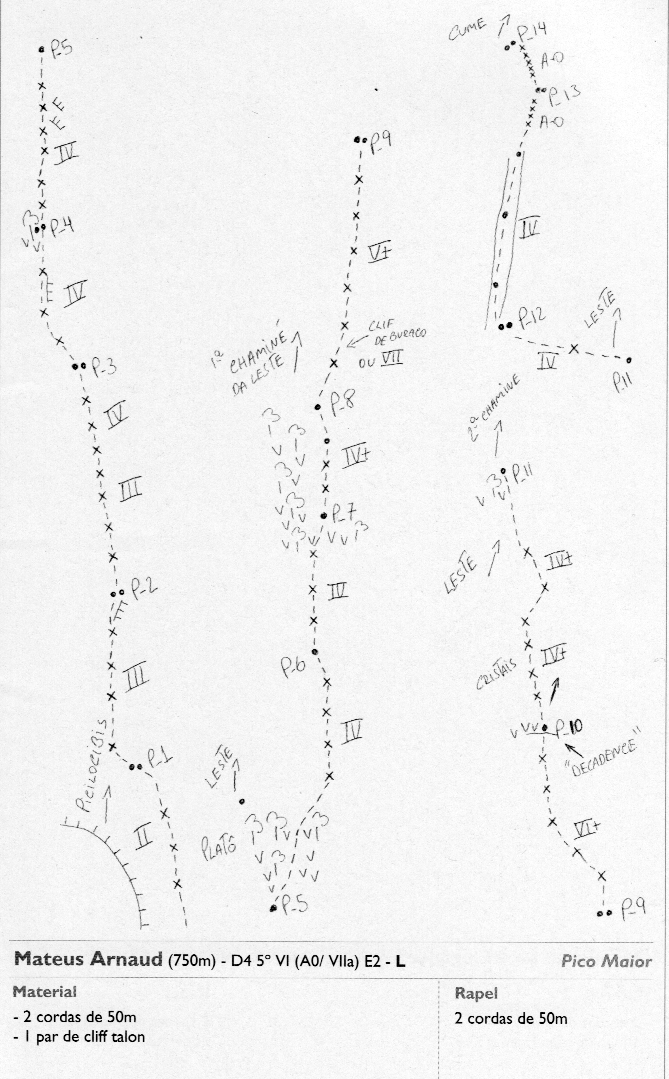 P-5
IV
P-4
IV
P-3
IV
III
P-2
III
PICILOCIBIS
P-1
II
P-9
VI+
CLIF
DE BURACO
OU VII
1ª CHAMINÉ
DA LESTE
P-8
IV+
P-7
IV
P-6
IV
LESTE
PLATÔ
P-5
CUME
P-14
A-0
P-13
A-0
IV
P-12
LESTE
IV
P-11
2ª CHAMINÉ
P-11
IV+
LESTE
IV+
CRISTAIS
P-10
"DECADENCE"
VI+
P-9
Mateus Arnaud (750m) - D4 5º VI (A0/ VIIa) E2 - L
Pico Maior
Material
- 2 cordas de 50m
- 1 par de cliff talon
Rapel
2 cordas de 50m